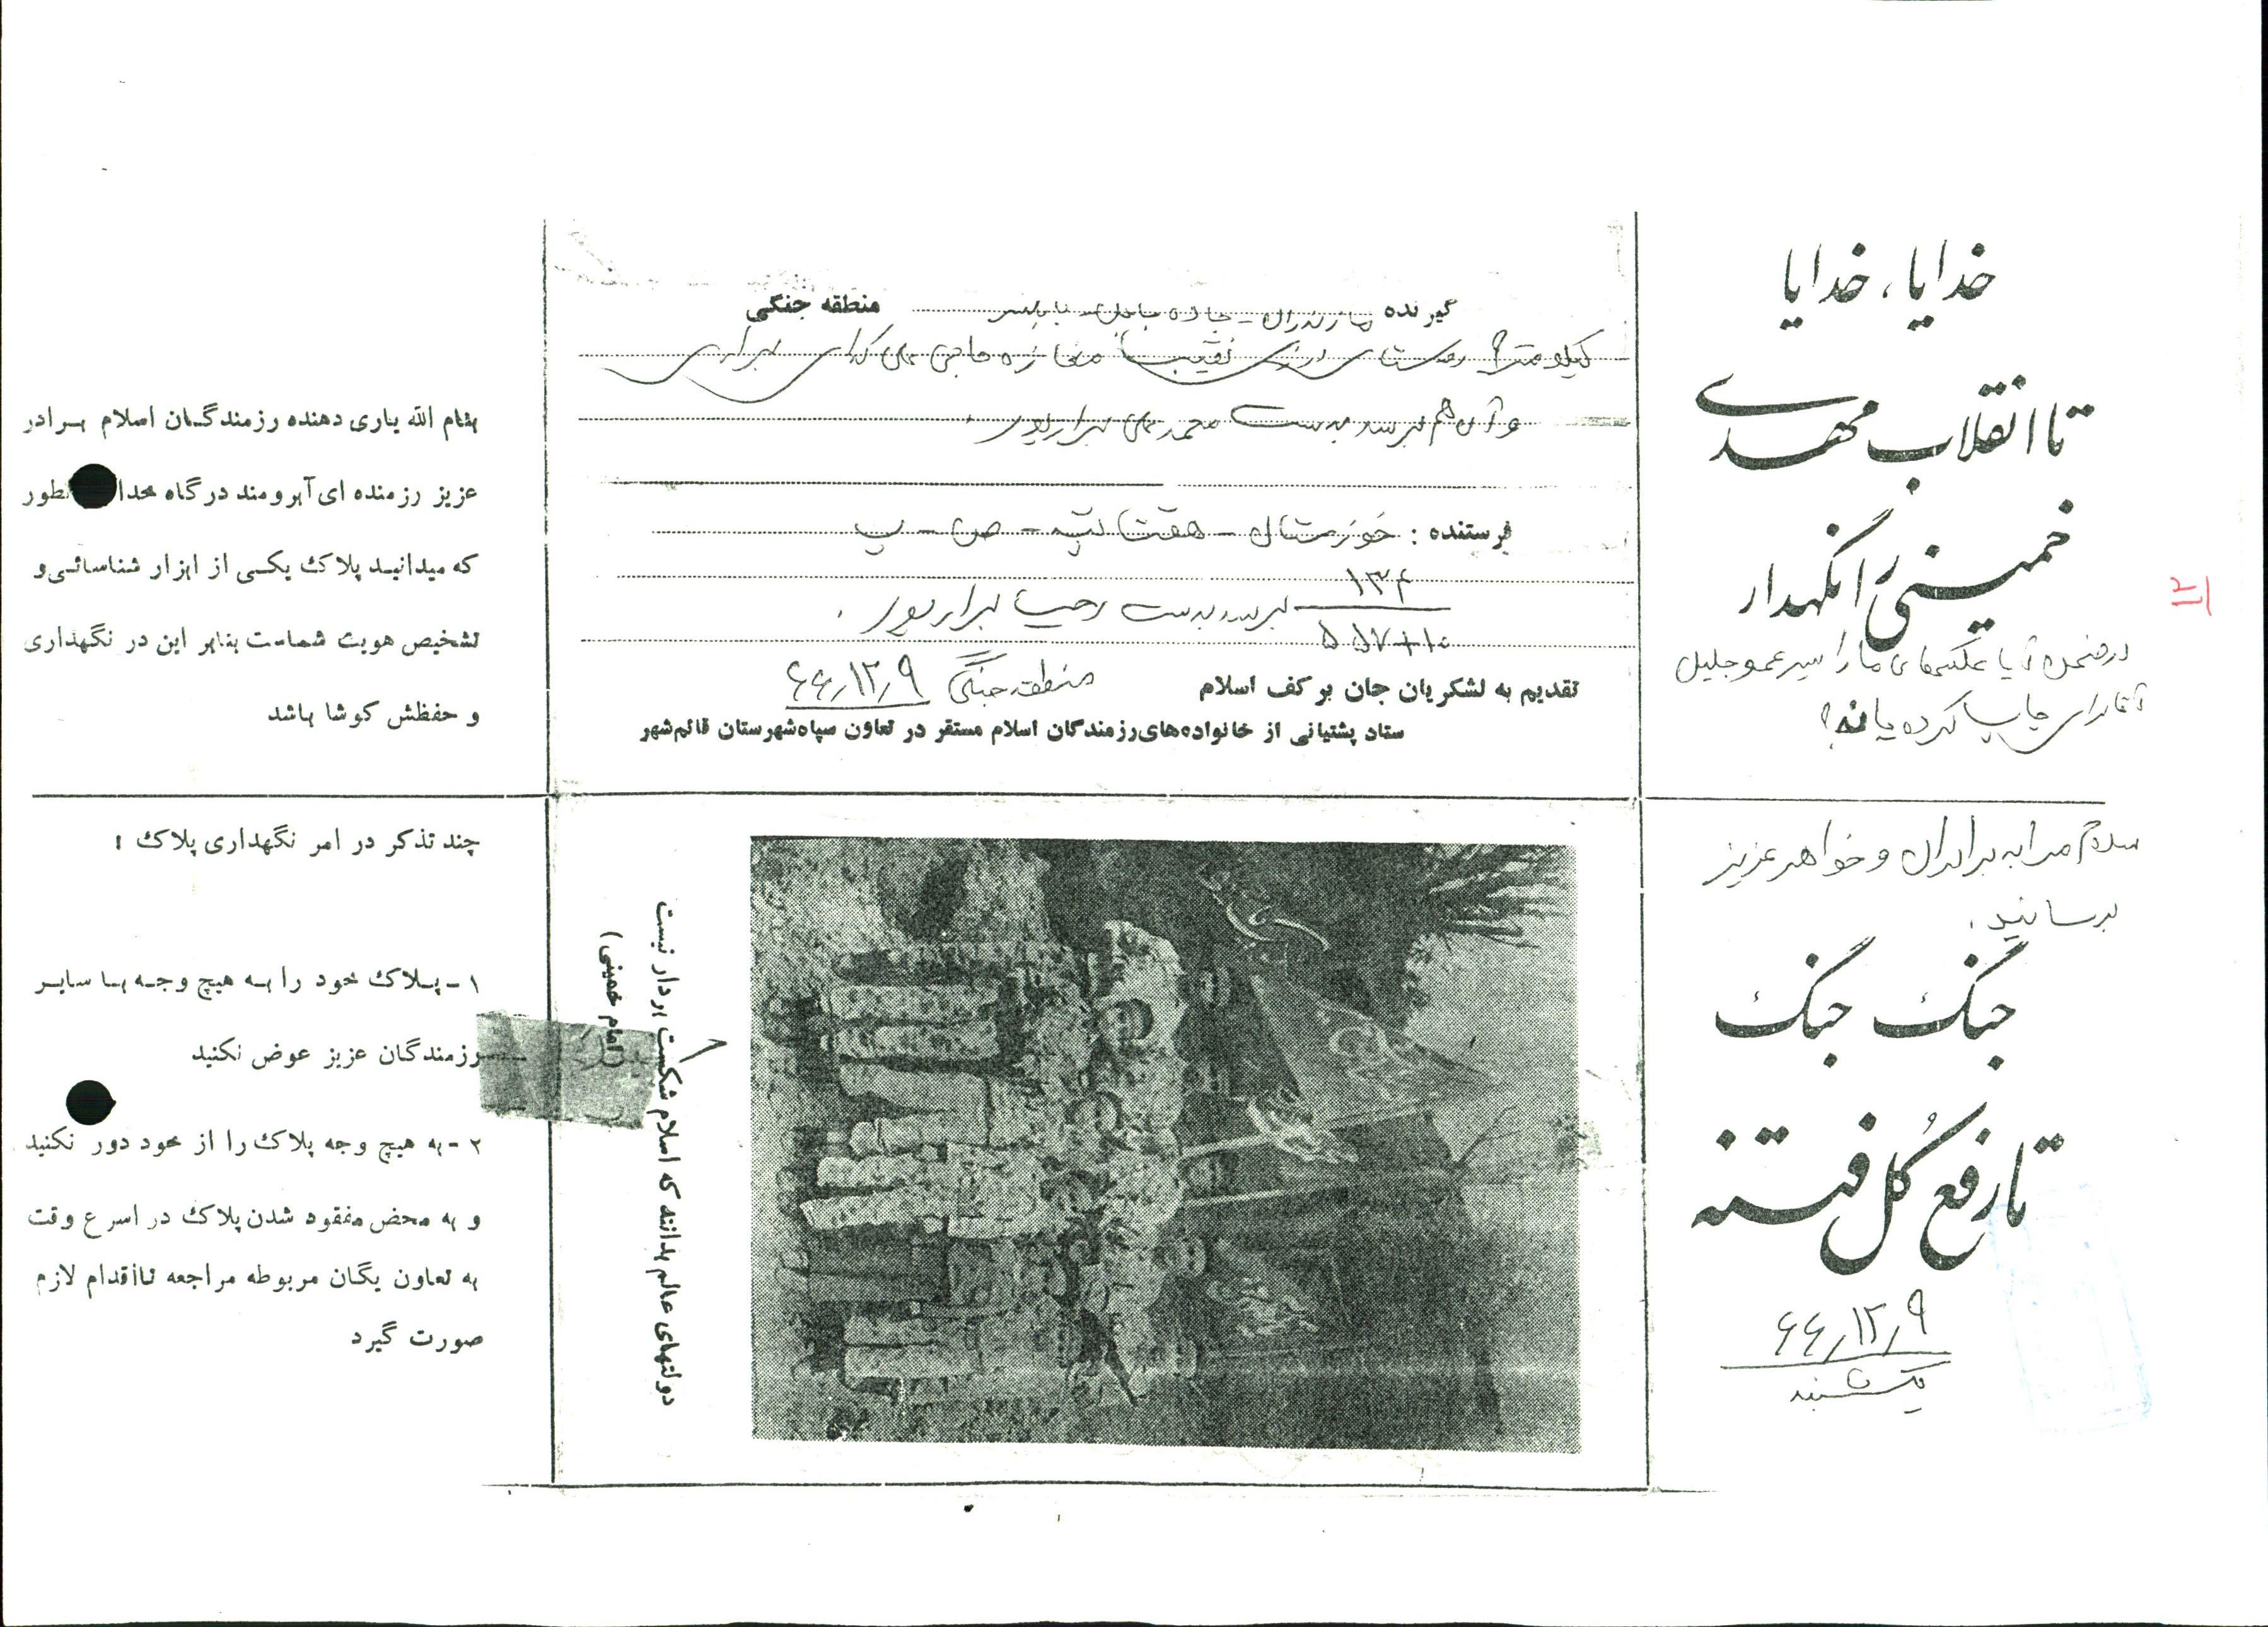 خدایا، خدایا
تا انقلاب مهدی
خمینی را نگهدار
در ضمن آیا عکسهای ما را پسر عمو جلیل
آقا برای چاپ کرده یا نه؟
سلام مرا به برادران و خواهر عزیز
برسانید.
جنگ جنگ
تا رفع کل فتنه
۶۶/۱۲/۹
یکشنبه
گیرنده مازندران - جاده بابل - بابلسر منطقه جنگی
کیلومتر ۹ روستای درزی نقیب مغازه حاجی علی کدای برادری
و آن هم برسد بدست محمد علی برارپور.
فرستنده : خوزستان - هفت تپه - ص - پ
۱۳۴
۵۵۷+۱۰
برسد بدست رحمت برارپور.
منطقه جنگی ۶۶/۱۲/۹
تقدیم به لشکریان جان بر کف اسلام
ستاد پشتیبانی از خانواده‌های رزمندگان اسلام مستقر در تعاون سپاه شهرستان قائم‌شهر
دولتهای عالم بدانند که اسلام شکست بردار نیست
(امام خمینی)
بنام الله یاری دهنده رزمندگان اسلام برادر
عزیز رزمنده ای آبرومند درگاه خدا نطور
که میدانید پلاک یکی از ابزار شناسائی و
تشخیص هویت شماست بنابر این در نگهداری
و حفظش کوشا باشد
چند تذکر در امر نگهداری پلاک :
۱ - پلاک خود را به هیچ وجه با سایر
رزمندگان عزیز عوض نکنید
۲ - به هیچ وجه پلاک را از خود دور نکنید
و به محض مفقود شدن پلاک در اسرع وقت
به تعاون یگان مربوطه مراجعه تا اقدام لازم
صورت گیرد